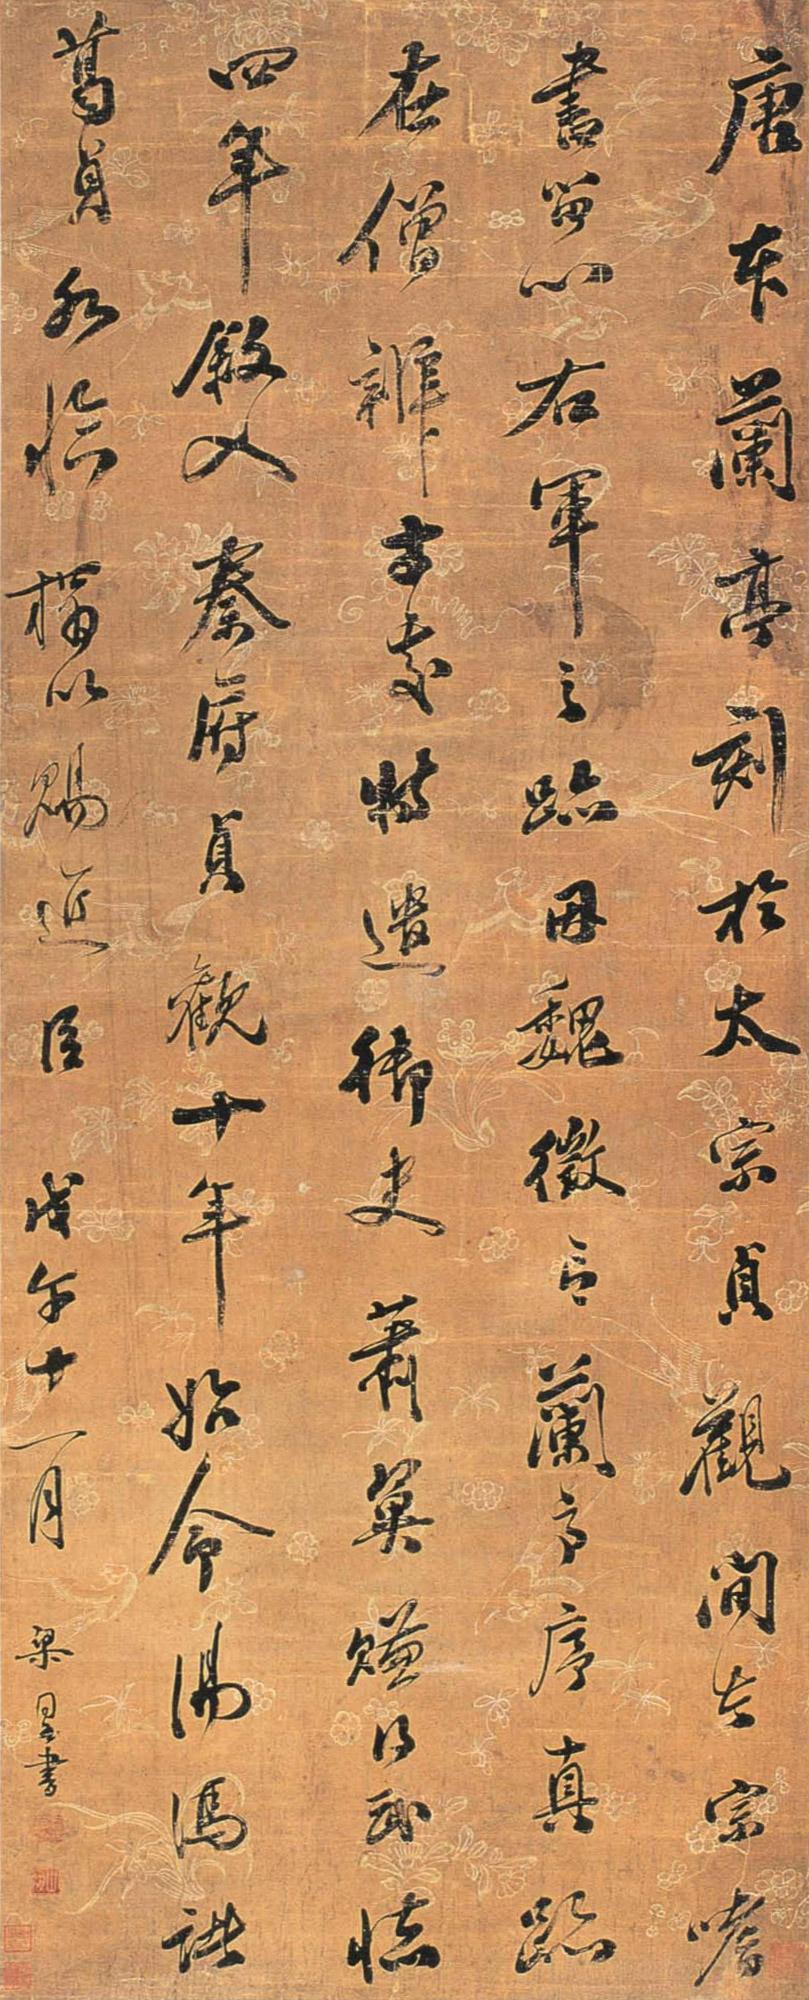 唐本蘭亭刻於太宗貞觀間太宗嗜
書留心右軍之蹟因魏徵言蘭亭序真蹟
在僧辨才處特遣御史蕭翼賺得武德
四年入秦府貞觀十年始命湯馮諸
葛貞臨榻以賜近臣 戊午十一月 梁書